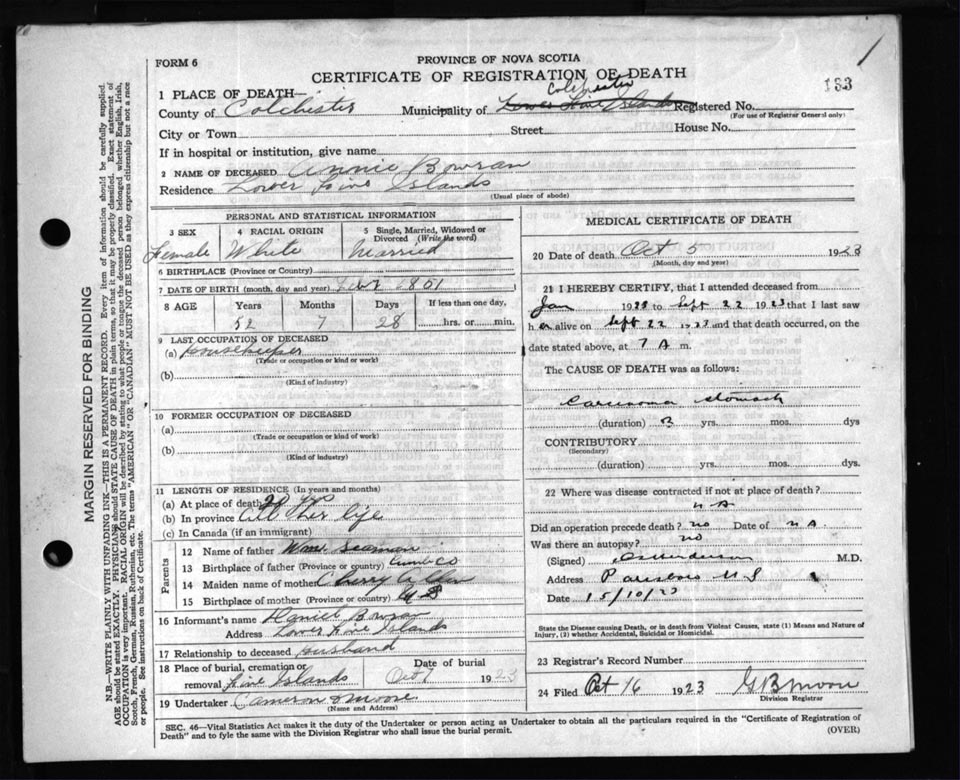 1
FORM 6
PROVINCE OF NOVA SCOTIA
CERTIFICATE OF REGISTRATION OF DEATH
133
1 PLACE OF DEATH—
County of Colchester
Municipality of Colchester Lower Five Islands
Registered No.
(For use of Registrar General only)
City or Town
Street
House No.
If in hospital or institution, give name
2 NAME OF DECEASED Annie Bowran
Residence Lower Five Islands
(Usual place of abode)
PERSONAL AND STATISTICAL INFORMATION
3 SEX
Female
4 RACIAL ORIGIN
White
5 Single, Married, Widowed or Divorced (Write the word)
Married
6 BIRTHPLACE (Province or Country)
7 DATE OF BIRTH (month, day and year)
8 AGE
Years Months Days If less than one day,
52 7 28 hrs. or min.
9 LAST OCCUPATION OF DECEASED
(a) Housekeeper
(Trade or occupation or kind or work)
(b)
(Kind of industry)
10 FORMER OCCUPATION OF DECEASED
(a)
(Trade or occupation or kind of work)
(b)
(Kind of industry)
11 LENGTH OF RESIDENCE (In years and months)
(a) At place of death
(b) In province All Her life
(c) In Canada (if an immigrant)
Parents
12 Name of father Wm Seaman
13 Birthplace of father (Province or country) Cumb Co
14 Maiden name of mother Cherry
15 Birthplace of mother (Province or country)
16 Informant's name Daniel Bowran
Address Lower Five Islands
17 Relationship to deceased Husband
18 Place of burial, cremation or removal Five Islands
Date of burial
Oct 7 1923
19 Undertaker Cameron & Moore
(Name and Address)
MEDICAL CERTIFICATE OF DEATH
20 Date of death Oct 5 1923
(Month, day and year)
21 I HEREBY CERTIFY, that I attended deceased from
Jan 1923 to Sept 22 1923 that I last saw
h er alive on Sept 22 1923 and that death occurred, on the
date stated above, at 7 A m.
The CAUSE OF DEATH was as follows:
Carcinoma Stomach
(duration) yrs. mos. dys
CONTRIBUTORY
(Secondary)
(duration) yrs. mos. dys.
22 Where was disease contracted if not at place of death?
n A
Did an operation precede death? no Date of n A
Was there an autopsy? no
(Signed) M.D.
Address Parrsboro N S
Date 15/10/23
State the Disease Causing Death, or in death from Violent Causes, state (1) Means and Nature of Injury, (2) whether Accidental, Suicidal or Homicidal.
23 Registrar's Record Number
24 Filed Oct 16 1923 G B Moore
Division Registrar
SEC. 46—Vital Statistics Act makes it the duty of the Undertaker or person acting as Undertaker to obtain all the particulars required in the "Certificate of Registration of
Death" and to fyle the same with the Division Registrar who shall issue the burial permit.
(OVER)
MARGIN RESERVED FOR BINDING
N.B.—WRITE PLAINLY WITH UNFADING INK—THIS IS A PERMANENT RECORD. Every item of information should be carefully supplied.
AGE should be stated EXACTLY. PHYSICIANS should STATE CAUSE OF DEATH in plain terms, so that it may be properly classified. Exact statement of
OCCUPATION is very important. RACIAL ORIGIN will be described by stating to what people or tongue the deceased person belonged whether English, Irish,
Scotch, French, German, Russian, Ruthenian, etc. The terms "AMERICAN" OR "CANADIAN" MUST NOT BE USED as they express citizenship but not a race
or people. See instructions on back of Certificate.